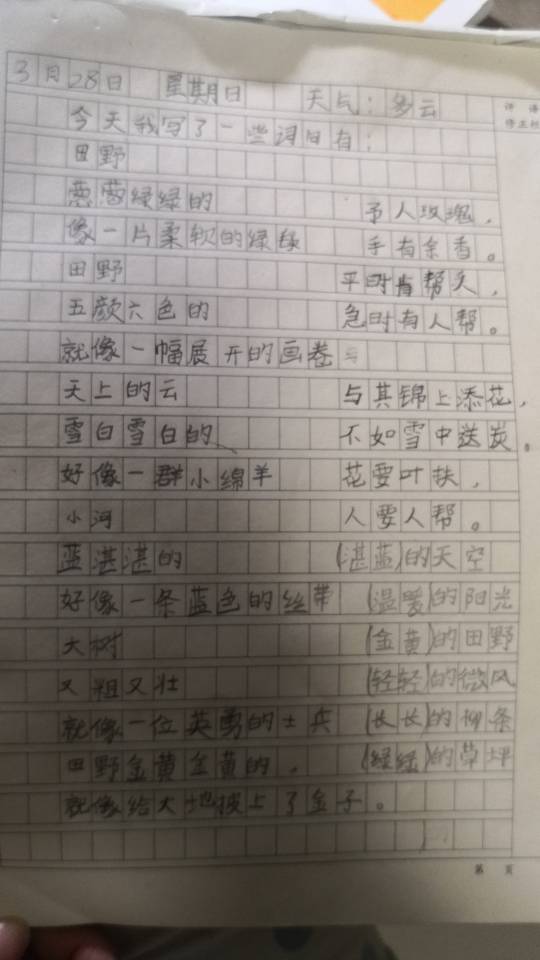 3月28日 星期日 天气：多云
今天我写了一些词日有：
田野
葱葱绿绿的 予人玫瑰，
像一片柔软的绿 手有余香。
田野 平时肯帮人，
五颜六色的 急时有人帮。
就像一幅展开的画卷
天上的云 与其锦上添花，
雪白雪白的 不如雪中送炭。
好像一群小绵羊 花要叶扶，
小河 人要人帮。
蓝湛湛的 (湛蓝)的天空
好像一条蓝色的丝带 (温暖)的阳光
大树 (金黄)的田野
又粗又壮 (轻轻)的微风
就像一位英勇的士兵 (长长)的柳条
田野金黄金黄的， (绿绿)的草坪
就像给大地披上了金子。
评语
第 页